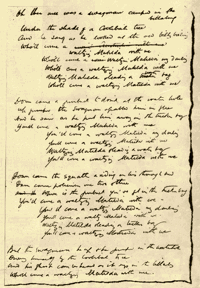 Oh there once was a swagman camped in the billabong
Under the shade of a Coolibah tree
And he sang as he looked at the old billy boiling
Who'll come a waltzing Matilda with me
Who'll come a waltzing Matilda my darling
Who'll come a waltzing Matilda with me
Waltzing Matilda leading a tucker bag
Who'll come a waltzing Matilda with me
Down came a jumbuck to drink at the water hole
Up jumped the swagman and grabbed him in glee
And he said as he put him away in the tucker bag
You'll come a waltzing Matilda with me
You'll come a waltzing Matilda my darling
You'll come a waltzing Matilda with me
Waltzing Matilda leading a tucker bag
You'll come a waltzing Matilda with me
Down came the Squatter a riding on his thoroughbred
Down came policemen one two three
Whose is the jumbuck you've got in the tucker bag
You'll come a waltzing Matilda with me
You'll come a waltzing Matilda my darling
You'll come a waltzing Matilda with me
Waltzing Matilda leading a tucker bag
You'll come a waltzing Matilda with me
But the swagman he up and jumped in the waterhole
Drowning himself by the Coolibah tree
And his ghost may be heard as it sings in the billabong
Who'll come a waltzing Matilda with me